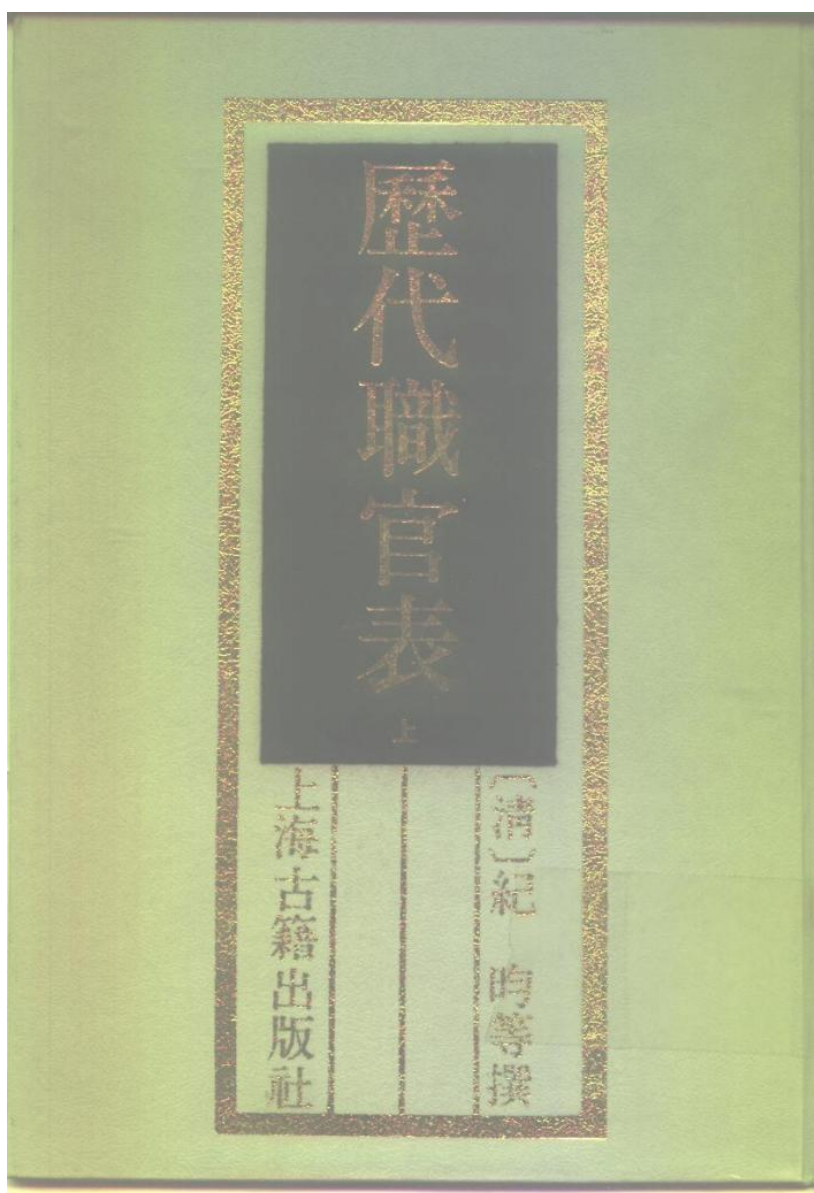 歷代職官表
上
〔清〕紀 昀等撰
上海古籍出版社